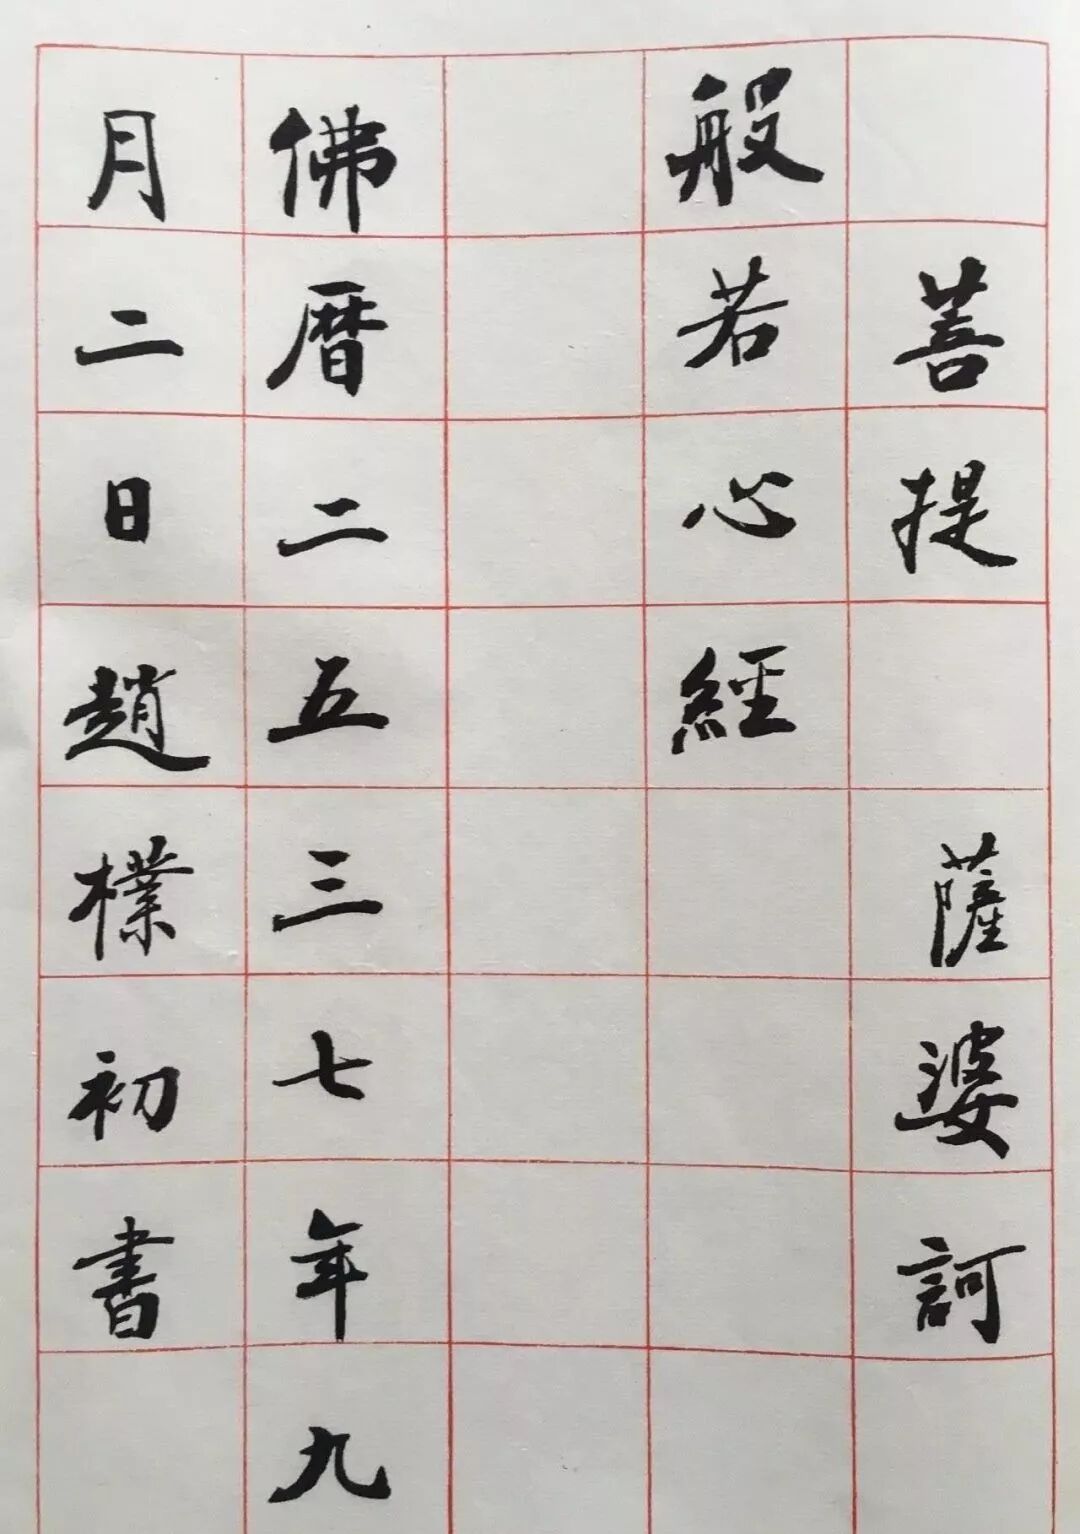 菩提 薩婆訶
般若心經
佛暦二五三七年九
月二日趙樸初書